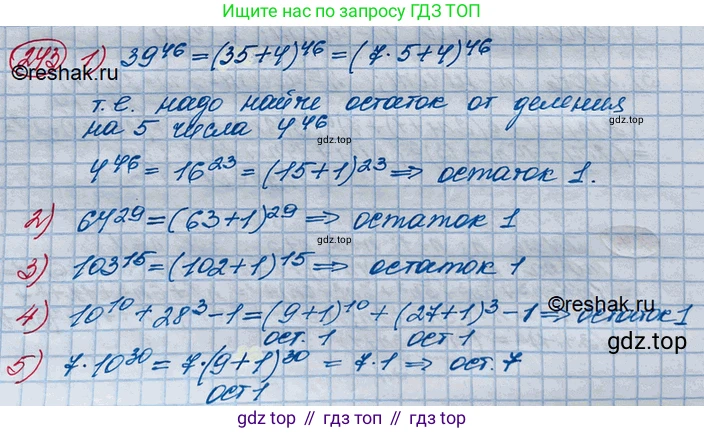 Ищите нас по запросу ГДЗ ТОП
243 1) 39^46 = (35+4)^46 = (7·5+4)^46
@reshak.ru
т.е. надо найти остаток от деления
gdz.top
на 5 числа 4^46
gdz.top
4^46 = 16^23 = (15+1)^23 ⇒ остаток 1.
2) 64^29 = (63+1)^29 ⇒ остаток 1
gdz.top
3) 103^15 = (102+1)^15 ⇒ остаток 1
4) 10^10 + 28^3 - 1 = (9+1)^10 + (27+1)^3 - 1 ⇒ остаток 1
@reshak.ru
ост. 1 ост 1
gdz.top
5) 7·10^30 = 7·(9+1)^30 = 7·1 ⇒ ост. 7
ост 1
gdz.top // гдз.топ // gdz.top // гдз.топ